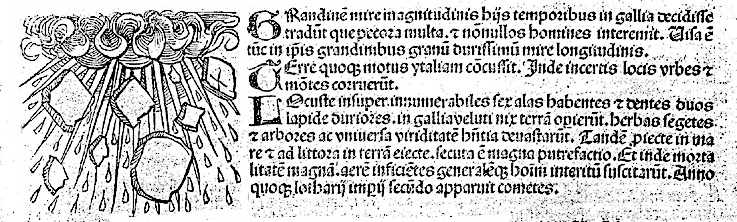 GRandinē mire magnitudinis hijs temporibus in gallia decidisse
tradūt que pecora multa. ⁊ nōnullos homines interemit. Uisa ē
tūc in ip̄is grandinibus granū durissimū mire longitudinis.
TErre quoqȝ motus ytaliam cōcussit. Inde incertis locis vrbes ⁊
mōtes corruerūt.
LOcuste insuper. innumerabiles sex alas habentes ⁊ dentes duos
lapide duriores. in gallia veluti nix terrā opierūt. herbas segetes
⁊ arbores ac vniuersa viriditatē hn̄tia deuastarūt. Tandē ꝓiecte in ma
re ⁊ ad littora in terrā eiecte. secuta ē magna putrefactio. Et inde morta
litatē magnā. aerē inficiētes generalēqȝ hoīm interitū suscitarūt. Anno
quoqȝ lotharij imꝑij secūdo apparuit cometes.